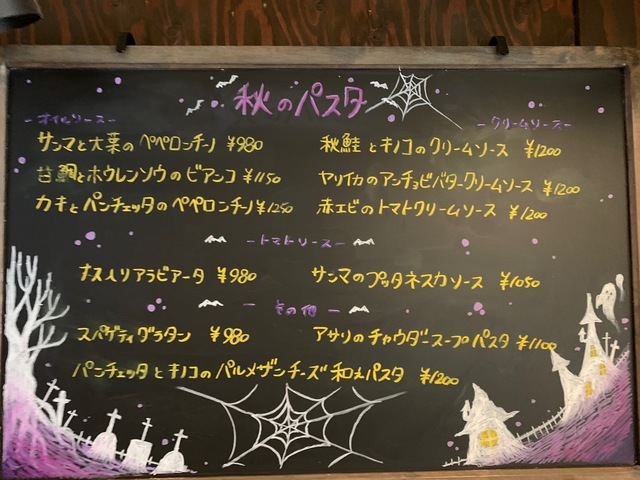 秋のパスタ
-オイルソース-
サンマと大葉のペペロンチーノ ¥980
甘鯛とホウレンソウのビアンコ ¥1150
カキとパンチェッタのペペロンチーノ ¥1250
-クリームソース-
秋鮭とキノコのクリームソース ¥1200
ヤリイカのアンチョビバタークリームソース ¥1200
赤エビのトマトクリームソース ¥1200
-トマトソース-
ナス入リアラビアータ ¥980
サンマのプッタネスカソース ¥1050
-その他-
スパゲティグラタン ¥980
アサリのチャウダースープパスタ ¥1100
パンチェッタとキノコのパルメザンチーズ和えパスタ ¥1200